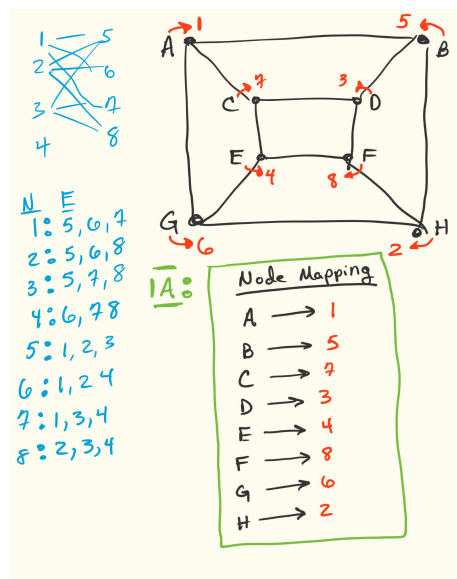 1 5
2 6
3 7
4 8
A 1
5 B
C 7
3 D
E 4
F 8
G 6
2 H
N E
1: 5, 6, 7
2: 5, 6, 8
3: 5, 7, 8
4: 6, 7 8
5: 1, 2, 3
6: 1, 2 4
7: 1, 3, 4
8: 2, 3, 4
1A:
Node Mapping
A → 1
B → 5
C → 7
D → 3
E → 4
F → 8
G → 6
H → 2